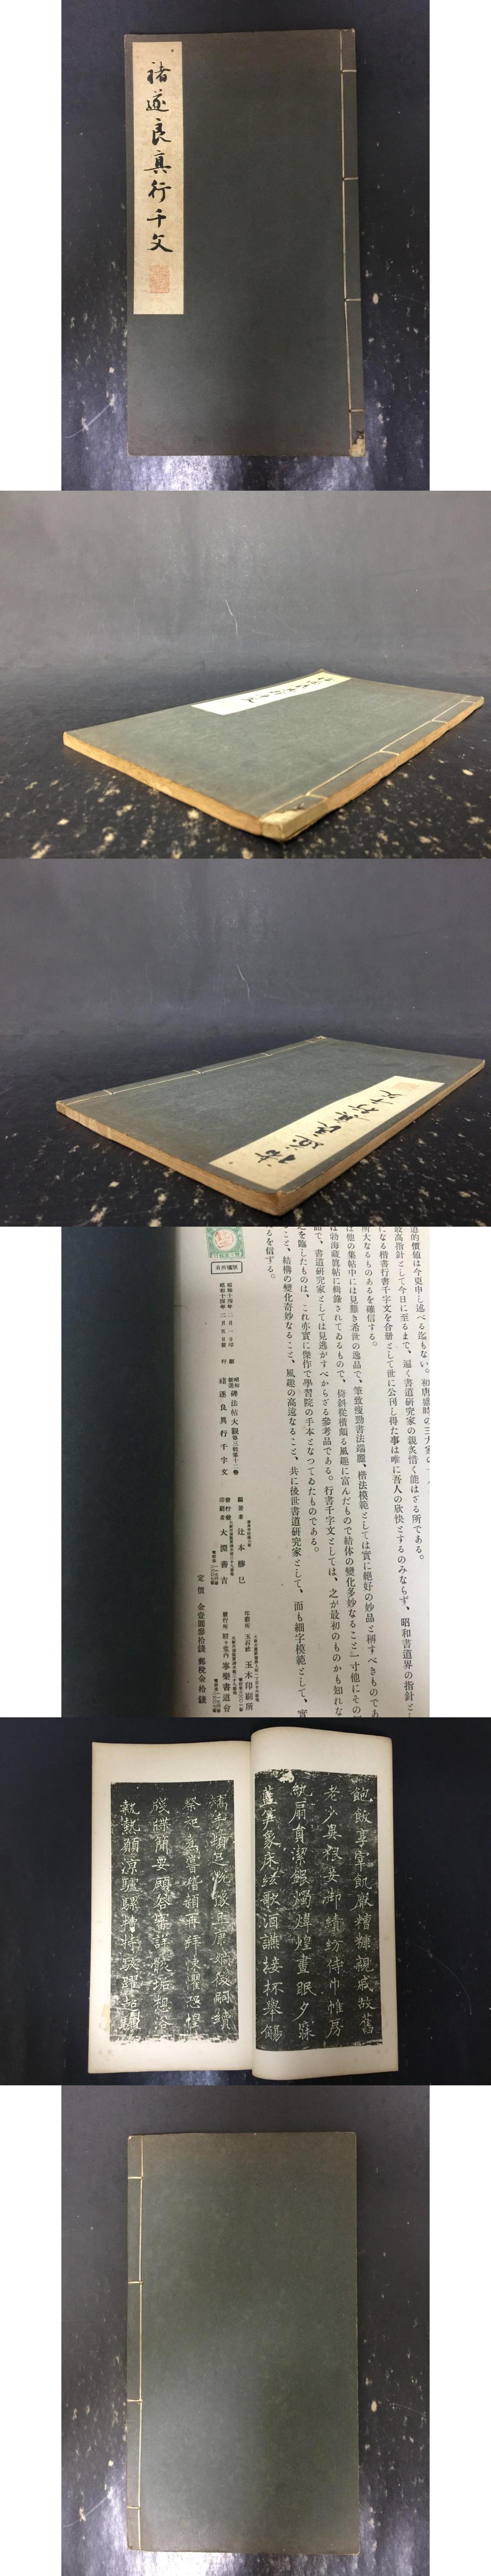 褚遂良真行千文
道的價値は今更申し述べる迄もない。初唐盛時の三大家の一人
最高指針として今日に至るまで、遍く書道研究家の親炙惜く能はざる所である。
になる楷書行書千字文を合册として世に公刊し得た事は唯に吾人の欣快とするのみならず、昭和書道界の指針とし
所大なるものあるを確信する。
は他の集帖中には見難き希世の逸品で、筆致瘦勁書法端麗、楷法模範としては實に絶好の妙品と稱すべきものであ
は勃海藏眞帖に輯錄されてゐるもので、倚斜從横頗る風趣に富んだもので結体の變化多妙なること一寸他にその
品で、書道研究家としては見逃がすべからざる參考品である。行書千字文としては、之が最初のものかも知れな
之を臨したものは、これ亦實に傑作で學習院の手本となつてゐたものである。
こと、結構の變化奇妙なること、風趣の高遠なること、共に後世書道研究家として、而も細字模範として、實
るを信する。
有所權版
昭和十四年二月一日印刷
昭和十四年二月五日發行
昭和新選碑法帖大觀第三輯第十二卷
褚遂良眞行千字文
編著者 辻本勝巳
發行者印刷者 大淵善吉
印刷所 玉石社 玉本印刷所
發行所 寧樂書道會
定價 金壹圓參拾錢 郵稅金拾錢
飽飫享宰飢厭糟糠親戚故舊
老少異糧妾御績紡侍巾帷房
紈扇員潔銀燭煒煌晝眠夕寐
藍笋象床絃歌酒讌接杯舉觴
矯手頓足悅豫且康嫡後嗣續
祭祀烝嘗稽顙再拜悚懼恐惶
牋牒簡要顧答審詳骸垢想浴
執熱願涼驢騾犢特駭躍超驤